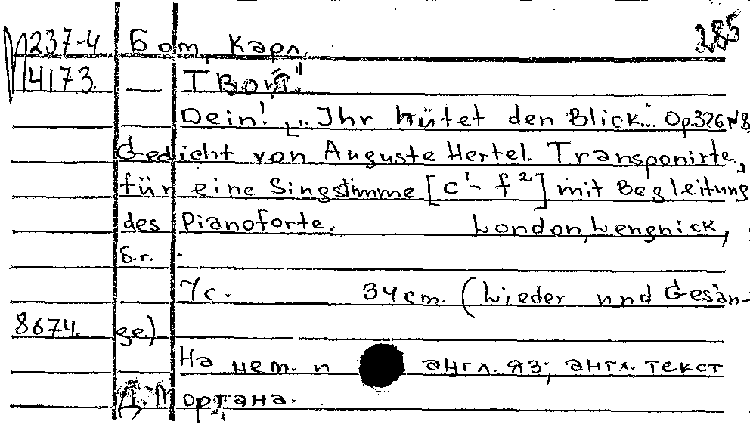 285
1237-4 Бом, Карл.
14173 — Твой!
Dein! „Ihr hütet den Blick..." Op.326 №8
Gedicht von Auguste Hertel. Transponirte,
für eine Singstimme [c¹- f²] mit Begleitung
des Pianoforte. London, Lengnick,
б.г.
7с. 34 cm. (Lieder und Gesän-
8674. ge)
На нем. и англ. яз; англ. текст
Д. Моргана.